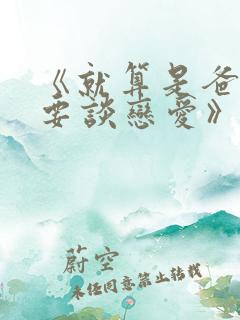 《就算是爸
要談戀愛》
蔚空
未任同意禁止转载